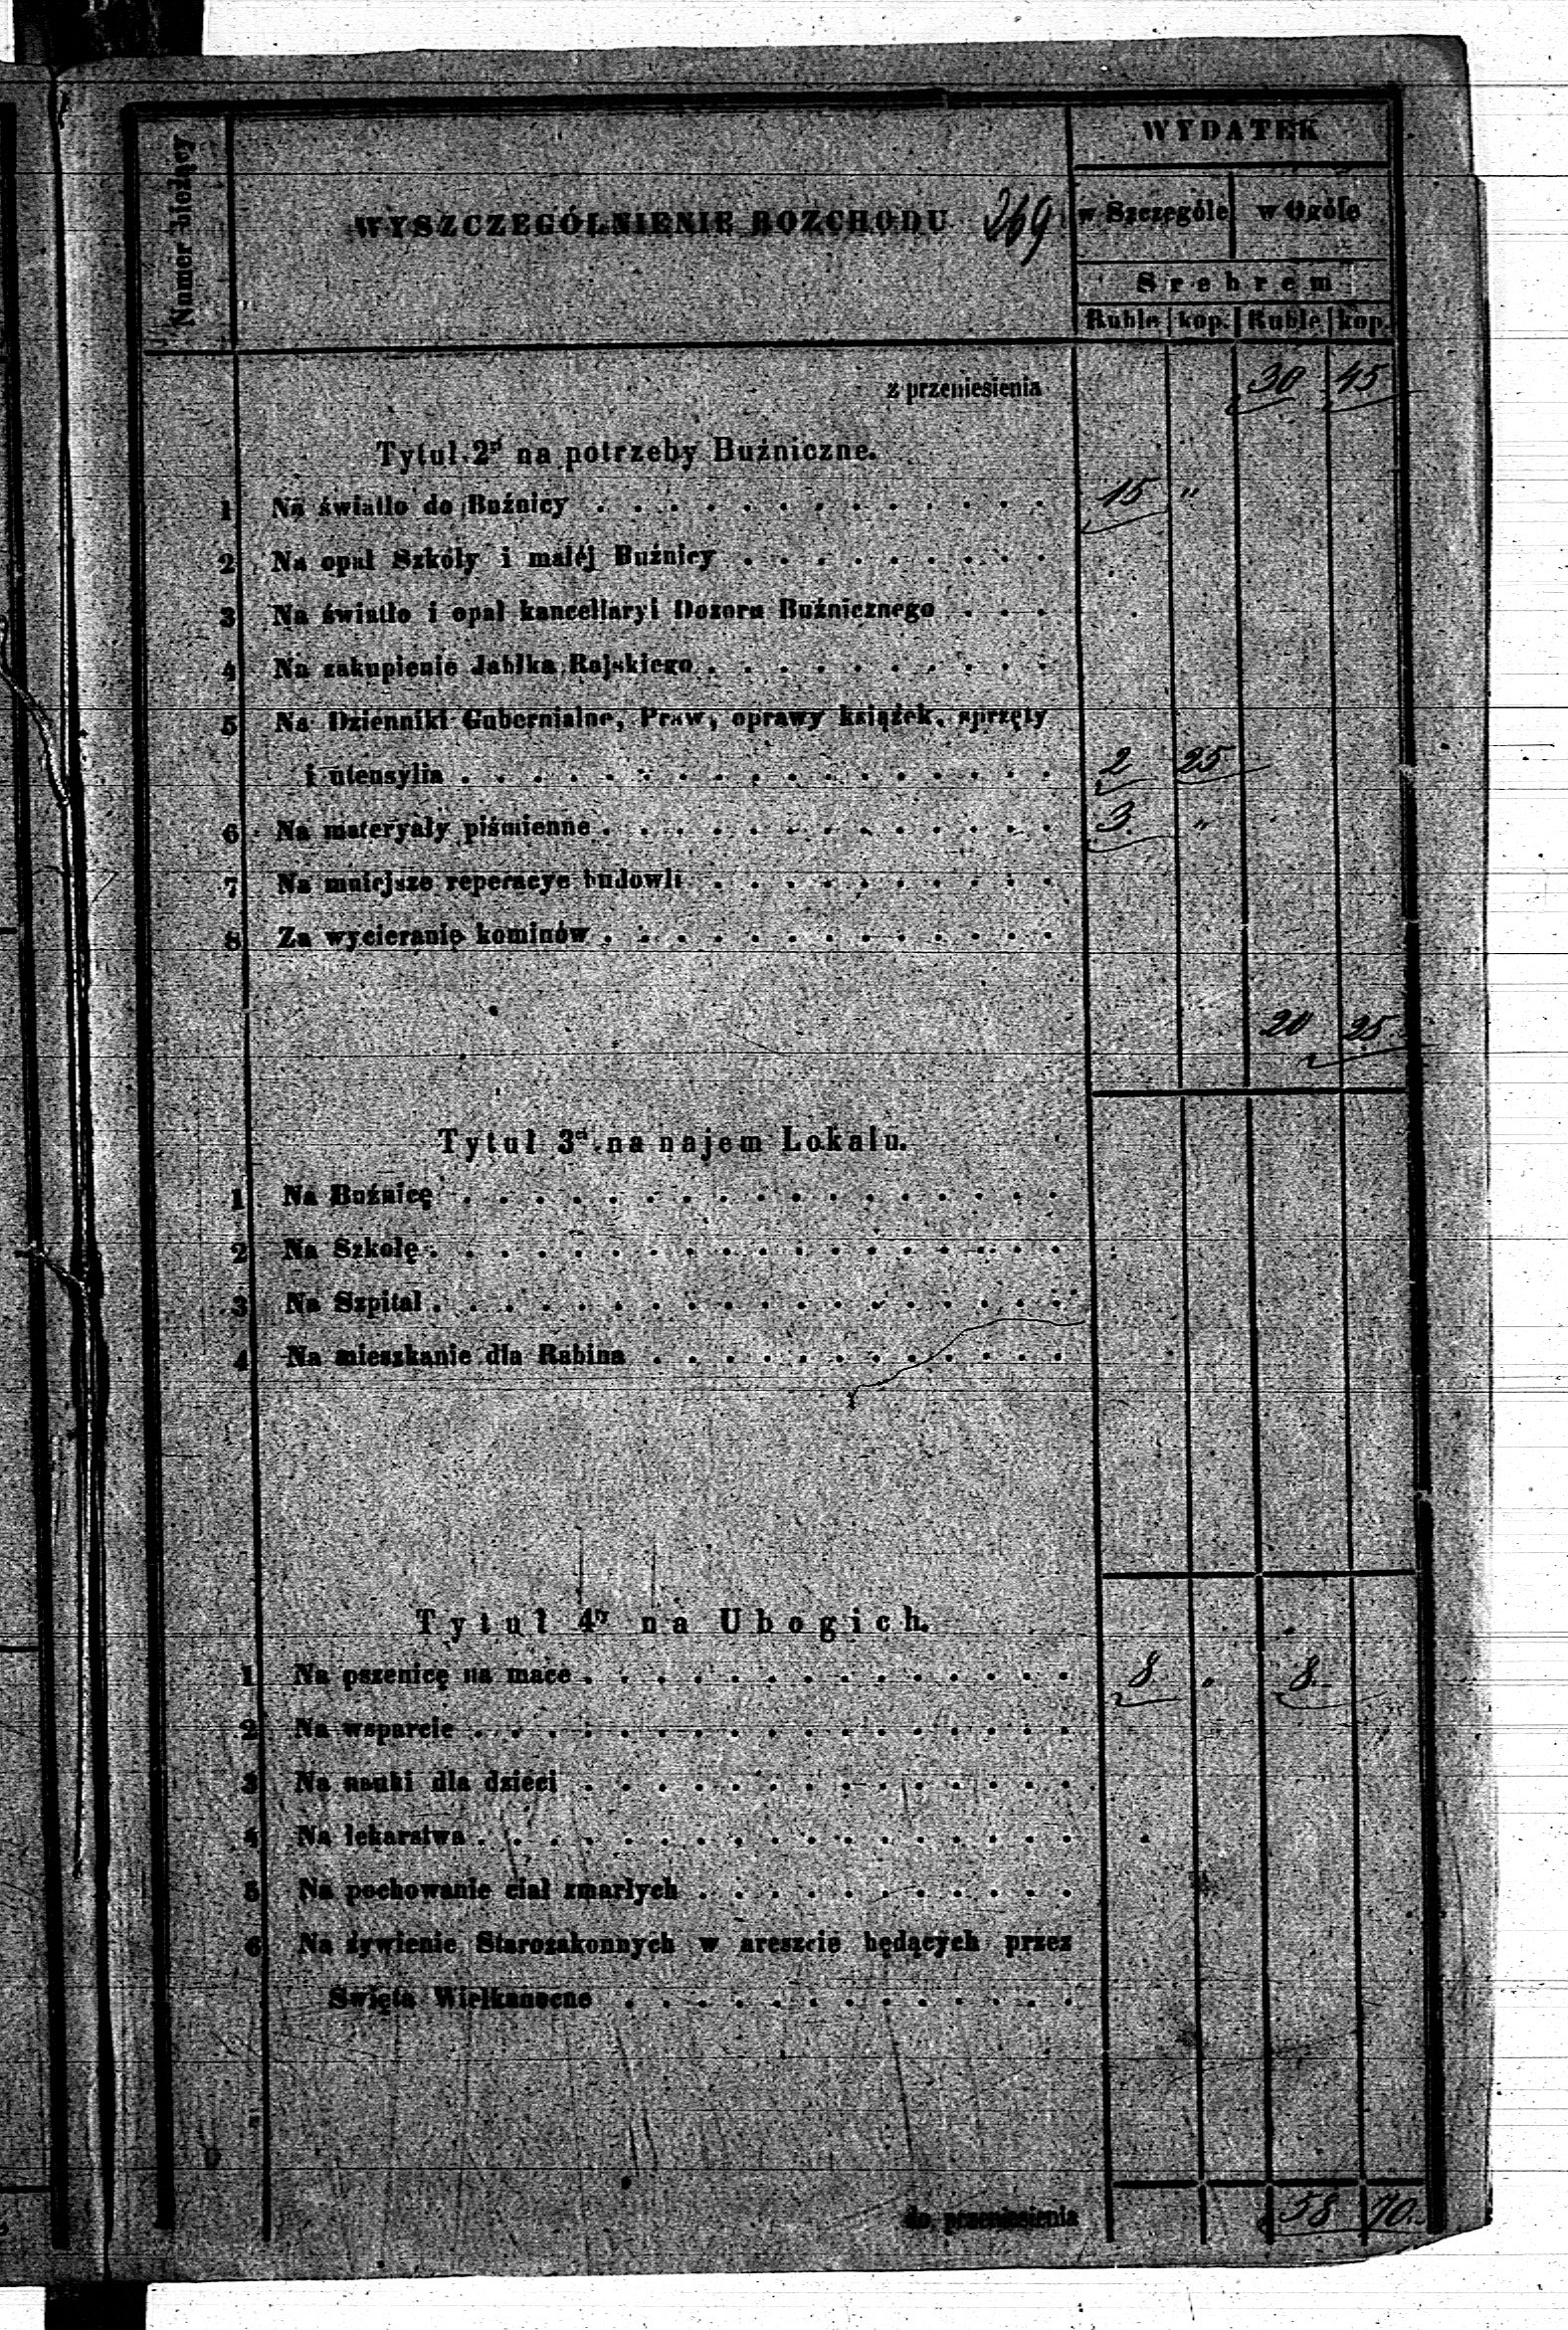 Numer bieżący
WYSZCZEGÓLNIENIE ROZCHODU 269
WYDATEK
w Szczególe w Ogóle
Srebrem
Ruble kop. Ruble kop.
z przeniesienia 30 45
Tytuł 2ᵍⁱ na potrzeby Buźniczne.
1 Na światło do Buźnicy . . . . . . . . . . . . . 15 "
2 Na opał Szkoły i małéj Buźnicy . . . . . . . . .
3 Na światło i opał kancellaryi Dozoru Buźnicznego . . .
4 Na zakupienie Jabłka Rajskiego . . . . . . . . . .
5 Na Dzienniki Gubernialne, Praw, oprawy książek, sprzęty
i utensylia . . . . . . . . . . . . . . . . . 2 25
6 Na materyały piśmienne . . . . . . . . . . . . . 3 "
7 Na mniejsze reperacye budowli . . . . . . . . . .
8 Za wycieranie kominów . . . . . . . . . . . . .
20 25
Tytuł 3ᶜⁱ na najem Lokalu.
1 Na Buźnicę . . . . . . . . . . . . . . . . .
2 Na Szkołę . . . . . . . . . . . . . . . . . .
3 Na Szpital . . . . . . . . . . . . . . . . . .
4 Na mieszkanie dla Rabina . . . . . . . . . . . .
Tytuł 4ᵗʸ na Ubogich.
1 Na pszenicę na mace . . . . . . . . . . . . . . 8 " 8
2 Na wsparcie . . . . . . . . . . . . . . . . .
3 Na nauki dla dzieci . . . . . . . . . . . . . .
4 Na lekarstwa . . . . . . . . . . . . . . . . .
5 Na pochowanie ciał zmarłych . . . . . . . . . . .
6 Na żywienie Starozakonnych w areszcie będących przez
Swięta Wielkanocne . . . . . . . . . . . . .
do przeniesienia 58 70